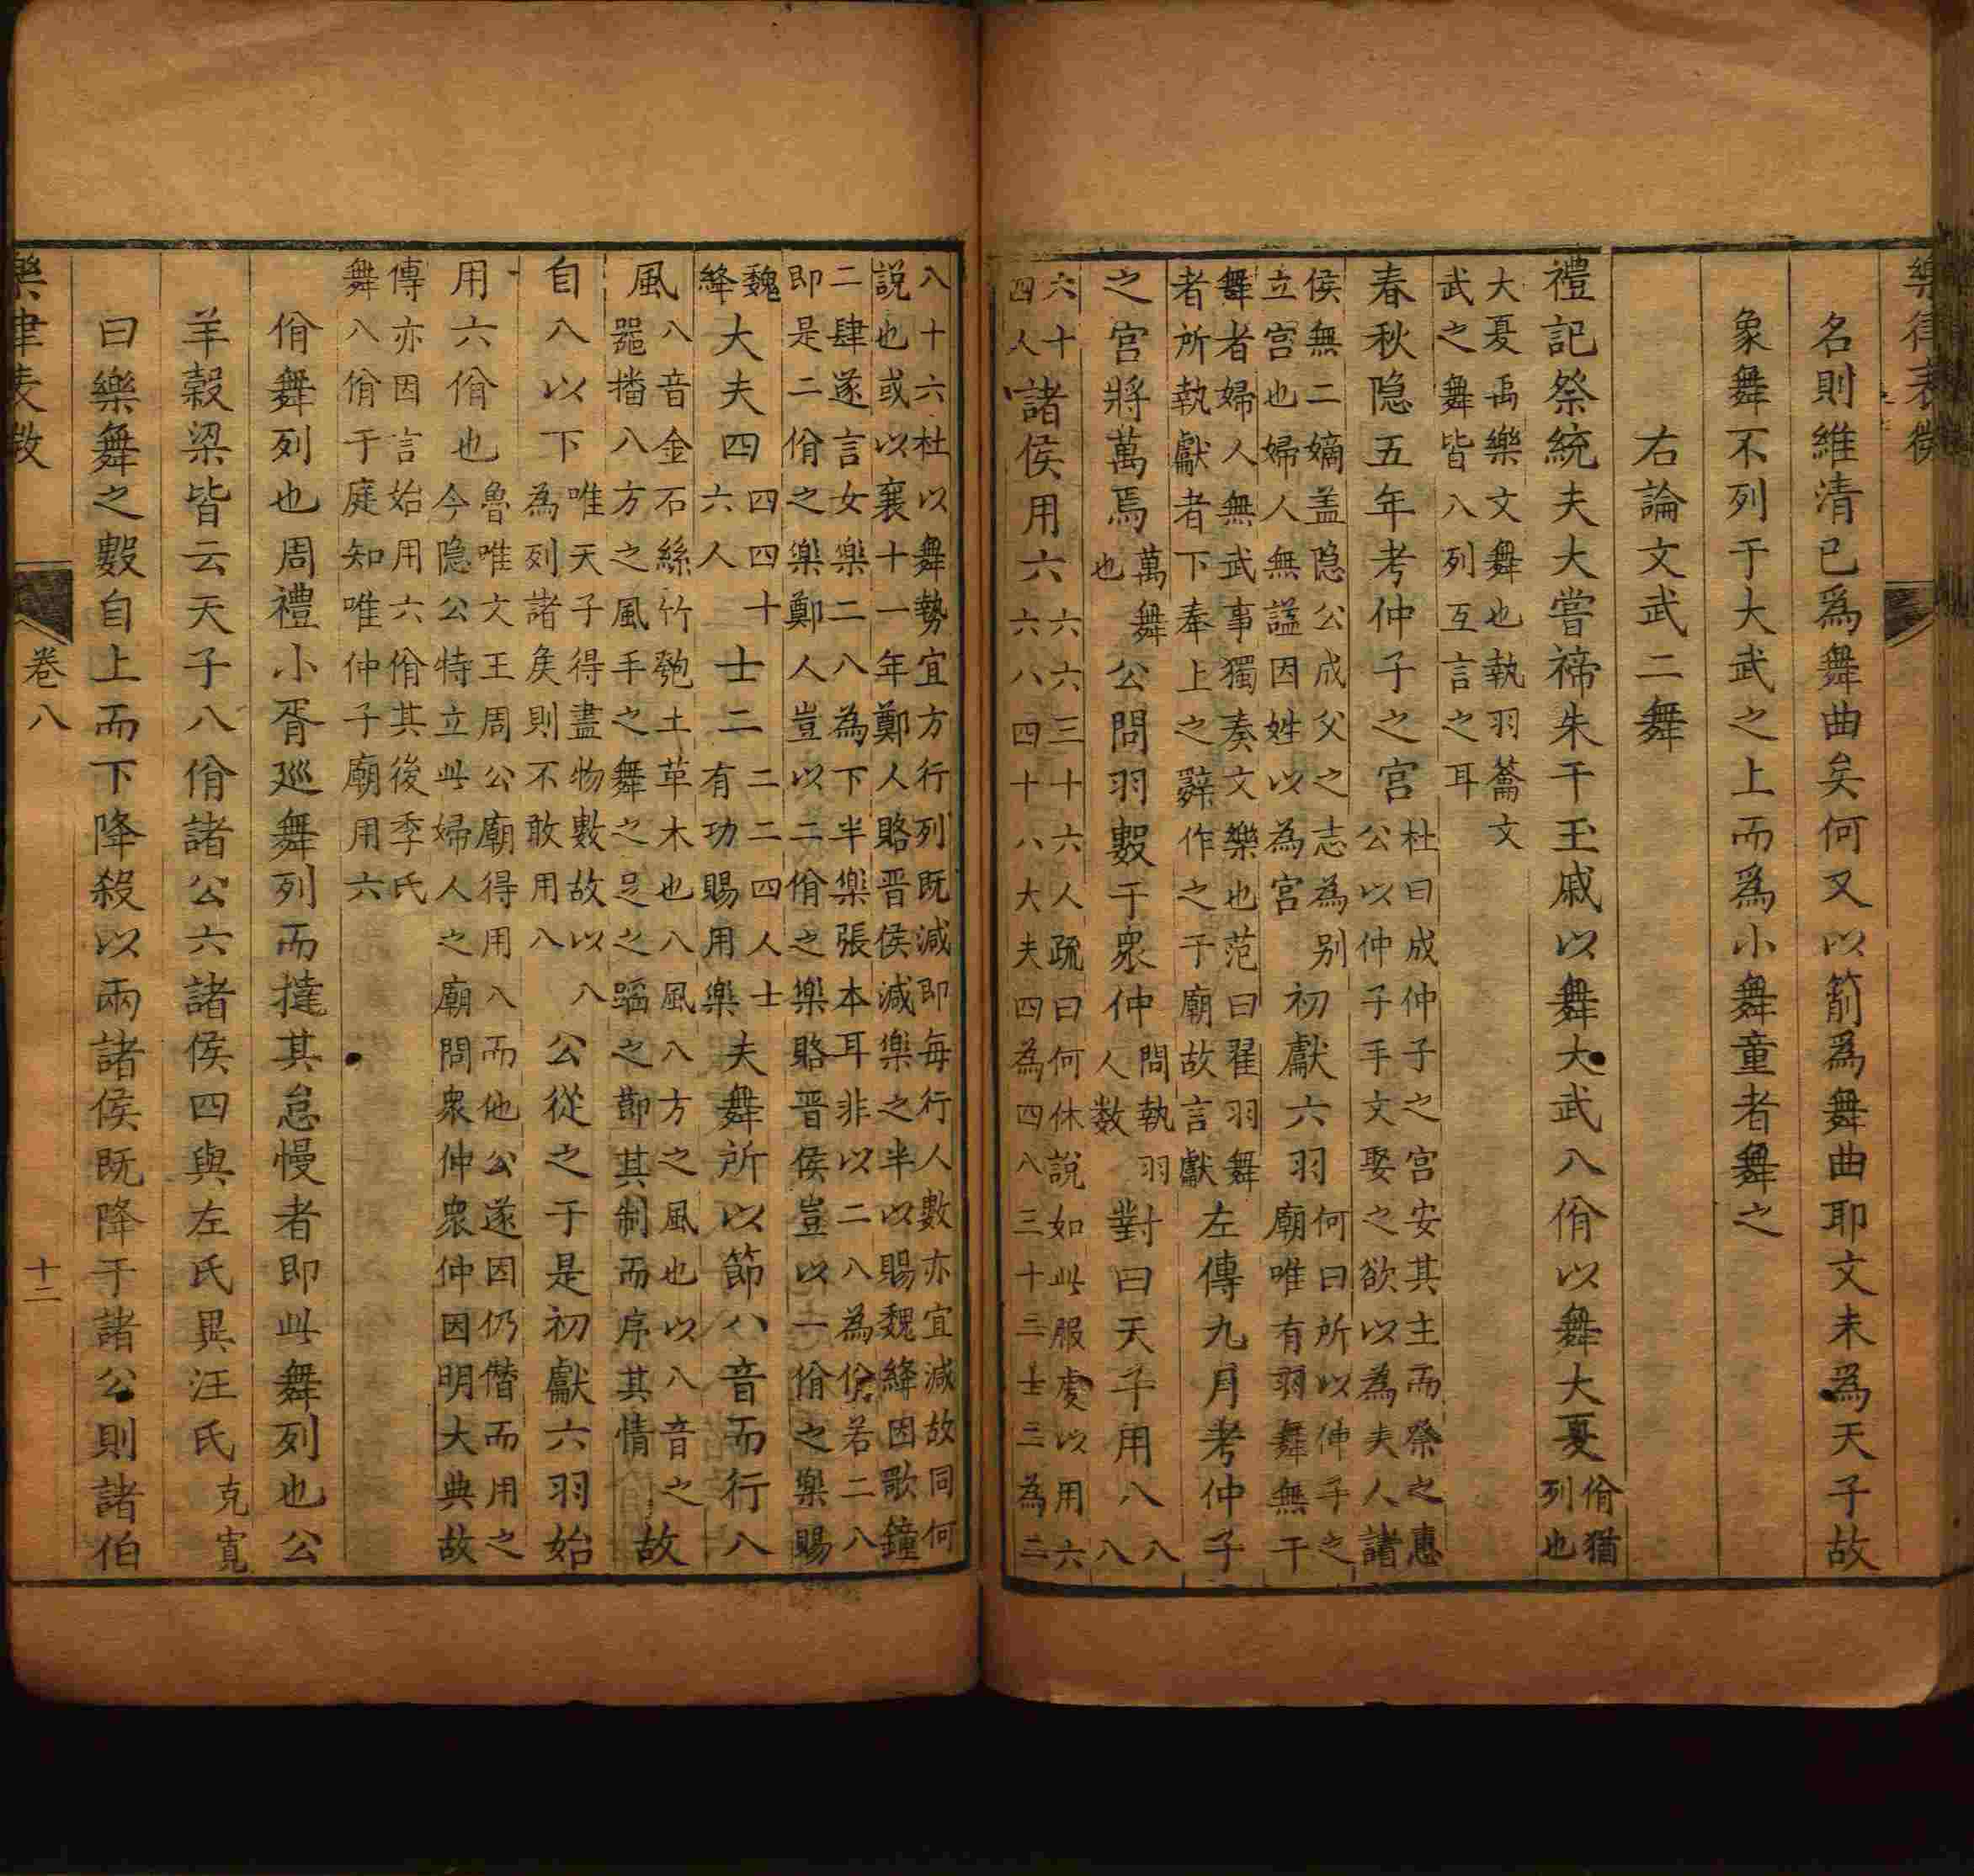 樂律表微
名則維清已爲舞曲矣何又以箾爲舞曲耶文未爲天子故
象舞不列于大武之上而爲小舞童者舞之
右論文武二舞
禮記祭統夫大嘗禘朱干玉戚以舞大武八佾以舞大夏佾猶列也
大夏禹樂文舞也執羽籥文武之舞皆八列互言之耳
春秋隐五年考仲子之宮杜曰成仲子之宫安其主而祭之惠公以仲子手文娶之欲以為夫人諸
侯無二嫡盖隐公成父之志為别立宫也婦人無諡因姓以為宮初獻六羽何曰所以仲子之廟唯有羽舞無干
舞者婦人無武事獨奏文樂也范曰翟羽舞者所執獻者下奉上之辭作之于廟故言獻左傳九月考仲子
之宮將萬焉萬舞也公問羽數于衆仲問執羽人数對曰天子用八八八
六十四人諸侯用六六六三十六人疏曰何休說如此服虔以用六六八四十八大夫四為四八三十二士二為二
八十六杜以舞勢宜方行列既減即每行人數亦宜減故同何說也或以襄十一年鄭人賂晋侯減樂之半以賜魏絳因歌鐘
二肆遂言女樂二八為下半樂張本耳非以二八為佾若二八即是二佾之樂鄭人豈以二佾之樂賂晋侯豈以一佾之樂賜
魏絳大夫四四四十六人士二二二四人士有功賜用樂夫舞所以節八音而行八
風八音金石絲竹匏土革木也八風八方之風也以八音之器播八方之風手之舞之足之蹈之節其制而序其情故
自八以下唯天子得盡物數故以八為列諸矦則不敢用八公從之于是初獻六羽始
用六佾也魯唯文王周公廟得用八而他公遂因仍僭而用之今隐公特立此婦人之廟問衆仲衆仲因明大典故
傳亦因言始用六佾其後季氏舞八佾于庭知唯仲子廟用六
佾舞列也周禮小胥廵舞列而撻其怠慢者即此舞列也公
羊榖梁皆云天子八佾諸公六諸侯四與左氏異汪氏克寛
曰樂舞之數自上而下降殺以兩諸侯既降于諸公則諸伯
樂律表微 卷八 十二